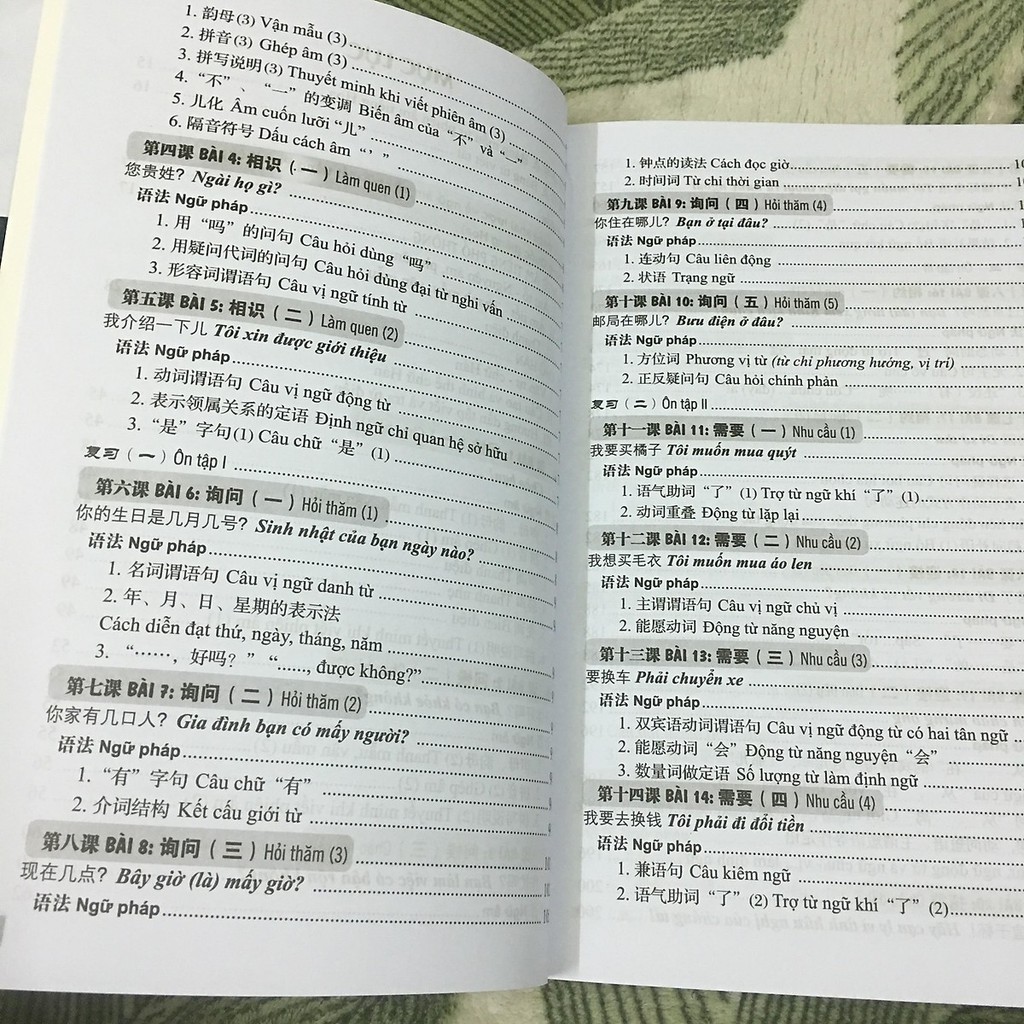 1. 韵母(3) Vận mẫu (3)
2. 拼音(3) Ghép âm (3)
3. 拼写说明(3) Thuyết minh khi viết phiên âm (3)
4. “不”、“一”的变调 Biến âm của “不” và “一”
5. 儿化 Âm cuốn lưỡi “儿”
6. 隔音符号 Dấu cách âm “ ’ ”
第四课 BÀI 4: 相识（一）Làm quen (1)
您贵姓? Ngài họ gì?
语法 Ngữ pháp
1. 用“吗”的问句 Câu hỏi dùng “吗”
2. 用疑问代词的问句 Câu hỏi dùng đại từ nghi vấn
3. 形容词谓语句 Câu vị ngữ tính từ
第五课 BÀI 5: 相识（二）Làm quen (2)
我介绍一下儿 Tôi xin được giới thiệu
语法 Ngữ pháp
1. 动词谓语句 Câu vị ngữ động từ
2. 表示领属关系的定语 Định ngữ chỉ quan hệ sở hữu
3. “是”字句(1) Câu chữ “是” (1)
复习（一）Ôn tập I
第六课 BÀI 6: 询问（一）Hỏi thăm (1)
你的生日是几月几号? Sinh nhật của bạn ngày nào?
语法 Ngữ pháp
1. 名词谓语句 Câu vị ngữ danh từ
2. 年、月、日、星期的表示法
Cách diễn đạt thứ, ngày, tháng, năm
3. “……，好吗？” “......, được không?”
第七课 BÀI 7: 询问（二）Hỏi thăm (2)
你家有几口人? Gia đình bạn có mấy người?
语法 Ngữ pháp
1. “有”字句 Câu chữ “有”
2. 介词结构 Kết cấu giới từ
第八课 BÀI 8: 询问（三）Hỏi thăm (3)
现在几点? Bây giờ (là) mấy giờ?
语法 Ngữ pháp
1. 钟点的读法 Cách đọc giờ
2. 时间词 Từ chỉ thời gian
第九课 BÀI 9: 询问（四）Hỏi thăm (4)
你住在哪儿? Bạn ở tại đâu?
语法 Ngữ pháp
1. 连动句 Câu liên động
2. 状语 Trạng ngữ
第十课 BÀI 10: 询问（五）Hỏi thăm (5)
邮局在哪儿? Bưu điện ở đâu?
语法 Ngữ pháp
1. 方位词 Phương vị từ (từ chỉ phương hướng, vị trí)
2. 正反疑问句 Câu hỏi chính phản
复习（二）Ôn tập II
第十一课 BÀI 11: 需要（一）Nhu cầu (1)
我要买橘子 Tôi muốn mua quýt
语法 Ngữ pháp
1. 语气助词“了”(1) Trợ từ ngữ khí “了”(1)
2. 动词重叠 Động từ lặp lại
第十二课 BÀI 12: 需要（二）Nhu cầu (2)
我想买毛衣 Tôi muốn mua áo len
语法 Ngữ pháp
1. 主谓谓语句 Câu vị ngữ chủ vị
2. 能愿动词 Động từ năng nguyện
第十三课 BÀI 13: 需要（三）Nhu cầu (3)
要换车 Phải chuyển xe
语法 Ngữ pháp
1. 双宾语动词谓语句 Câu vị ngữ động từ có hai tân ngữ
2. 能愿动词“会” Động từ năng nguyện “会”
3. 数量词做定语 Số lượng từ làm định ngữ
第十四课 BÀI 14: 需要（四）Nhu cầu (4)
我要去换钱 Tôi phải đi đổi tiền
语法 Ngữ pháp
1. 兼语句 Câu kiêm ngữ
2. 语气助词“了”(2) Trợ từ ngữ khí “了”(2)